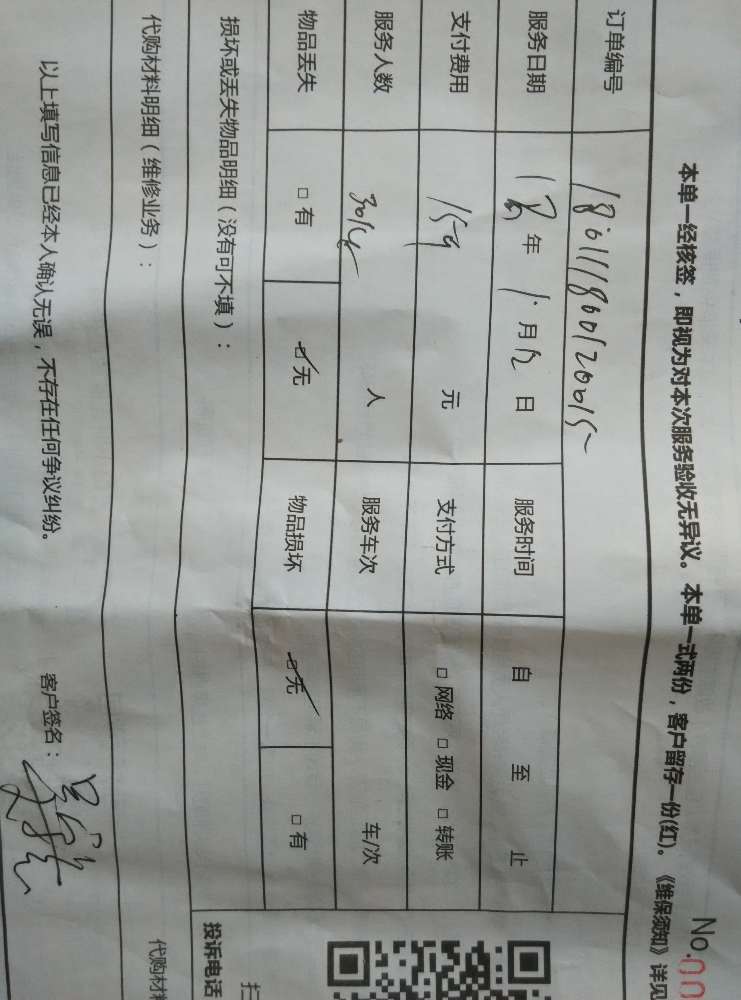 No.00
本单一经核签，即视为对本次服务验收无异议。本单一式两份，客户留存一份(红)。《维保须知》详见
订单编号
服务日期 18 年 1 月 12 日 服务时间 自 至 止
支付费用 159 元 支付方式 □ 网络 □ 现金 □ 转账
服务人数 人 服务车次 车/次
物品丢失 □ 有 □ 无 物品损坏 □ 无 □ 有
损坏或丢失物品明细（没有可不填）：
投诉电话
扫
代购材料明细（维修业务）：
代购材料
以上填写信息已经本人确认无误，不存在任何争议纠纷。 客户签名：